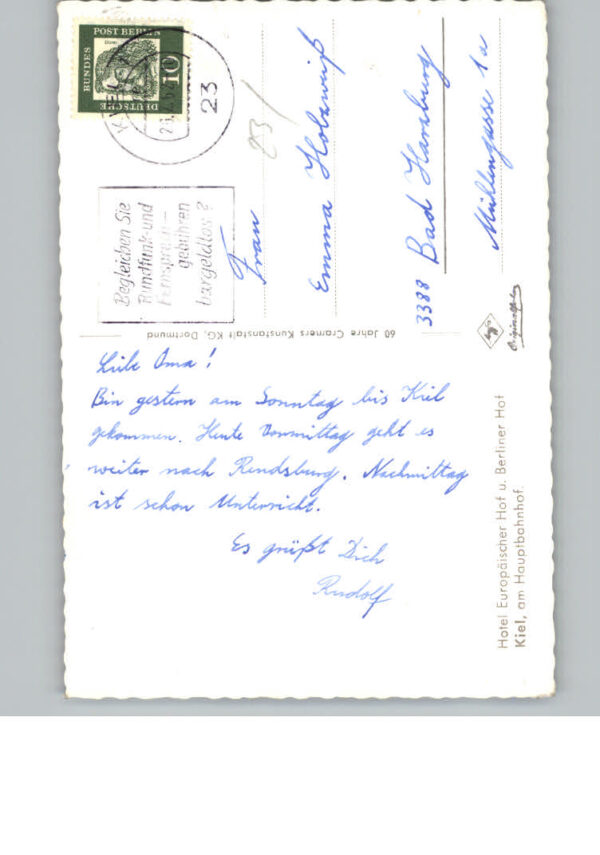 Liebe Oma!
Bin gestern am Sonntag bis Kiel
gekommen. Heute Vormittag geht es
weiter nach Rendsburg. Nachmittag
ist schon Unterricht.
Es grüßt Dich
Rudolf
Frau
Emma Holzweiß
3388 Bad Harzburg
Mühlengasse 1a
23
DEUTSCHE BUNDESPOST BERLIN
Dürer
10
KIEL
23
Begleichen Sie
Rundfunk- und
Fernsprech-
gebühren
bargeldlos?
60 Jahre Cramers Kunstanstalt KG, Dortmund
Hotel Europäischer Hof u. Berliner Hof
Kiel, am Hauptbahnhof.